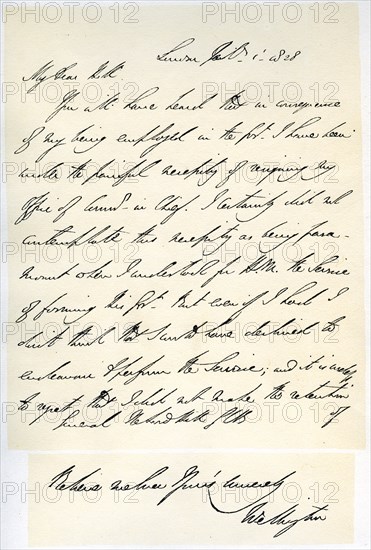 London Feb. 1. 1828
My Dear Hill
You will have heard that in consequence
of my being employed in the Govt. I have been
under the painful necessity of resigning my
Office of Commr. in Chief. I certainly did not
contemplate this necessity as being para-
mount when I undertook for H.M. the Service
of forming his Govt. But even if I had I
don't think that I could have declined to
endeavour to perform the Service; and it is useless
to regret that I did not make the retention of
General Lord Hill GCB
Believe me Ever Yours sincerely
Wellington
PHOTO 12